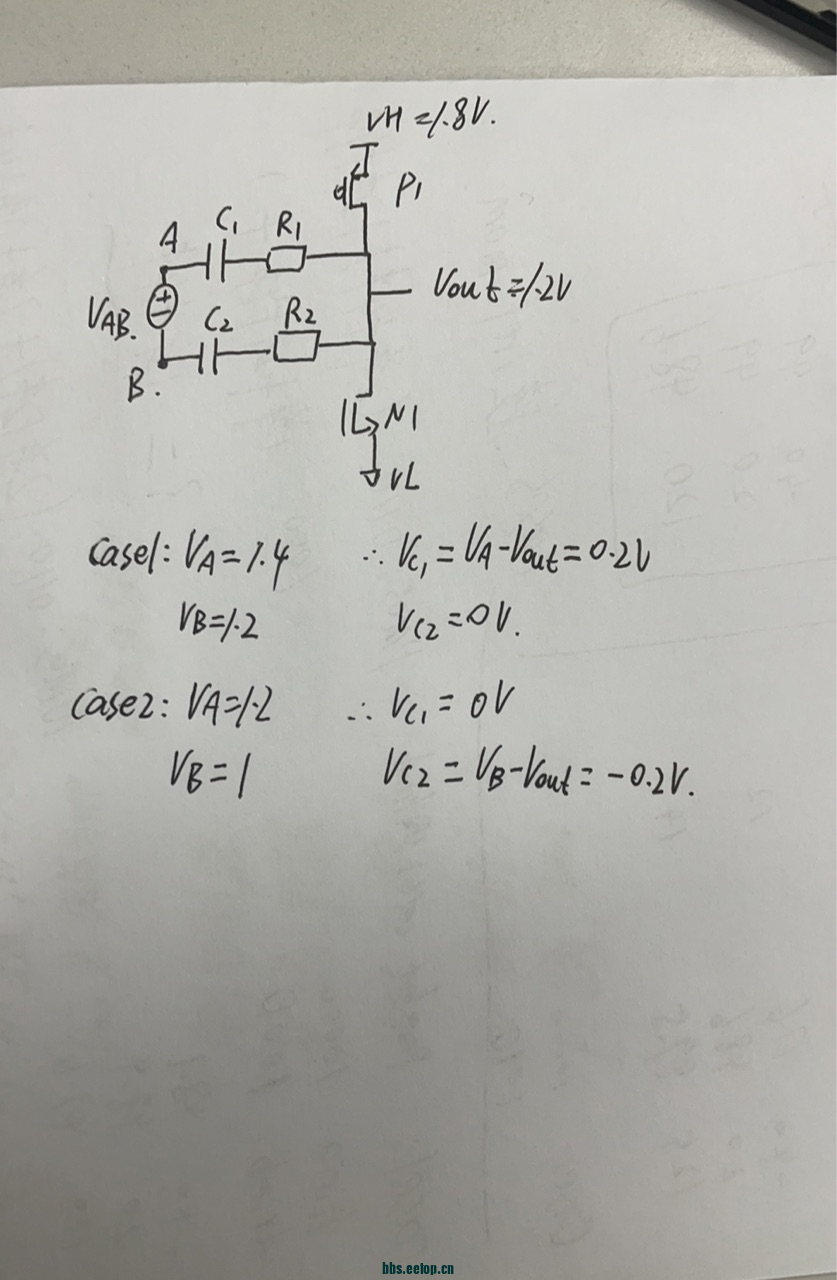 VH=1.8V.
P1
A
C1
R1
Vout=1.2V
VAB.
C2
R2
B.
N1
VL
case1: VA=1.4 ∴ VC1=VA-Vout=0.2V
VB=1.2 VC2=0V.
case2: VA=1.2 ∴ VC1=0V
VB=1 VC2=VB-Vout=-0.2V.
bbs.eetop.cn